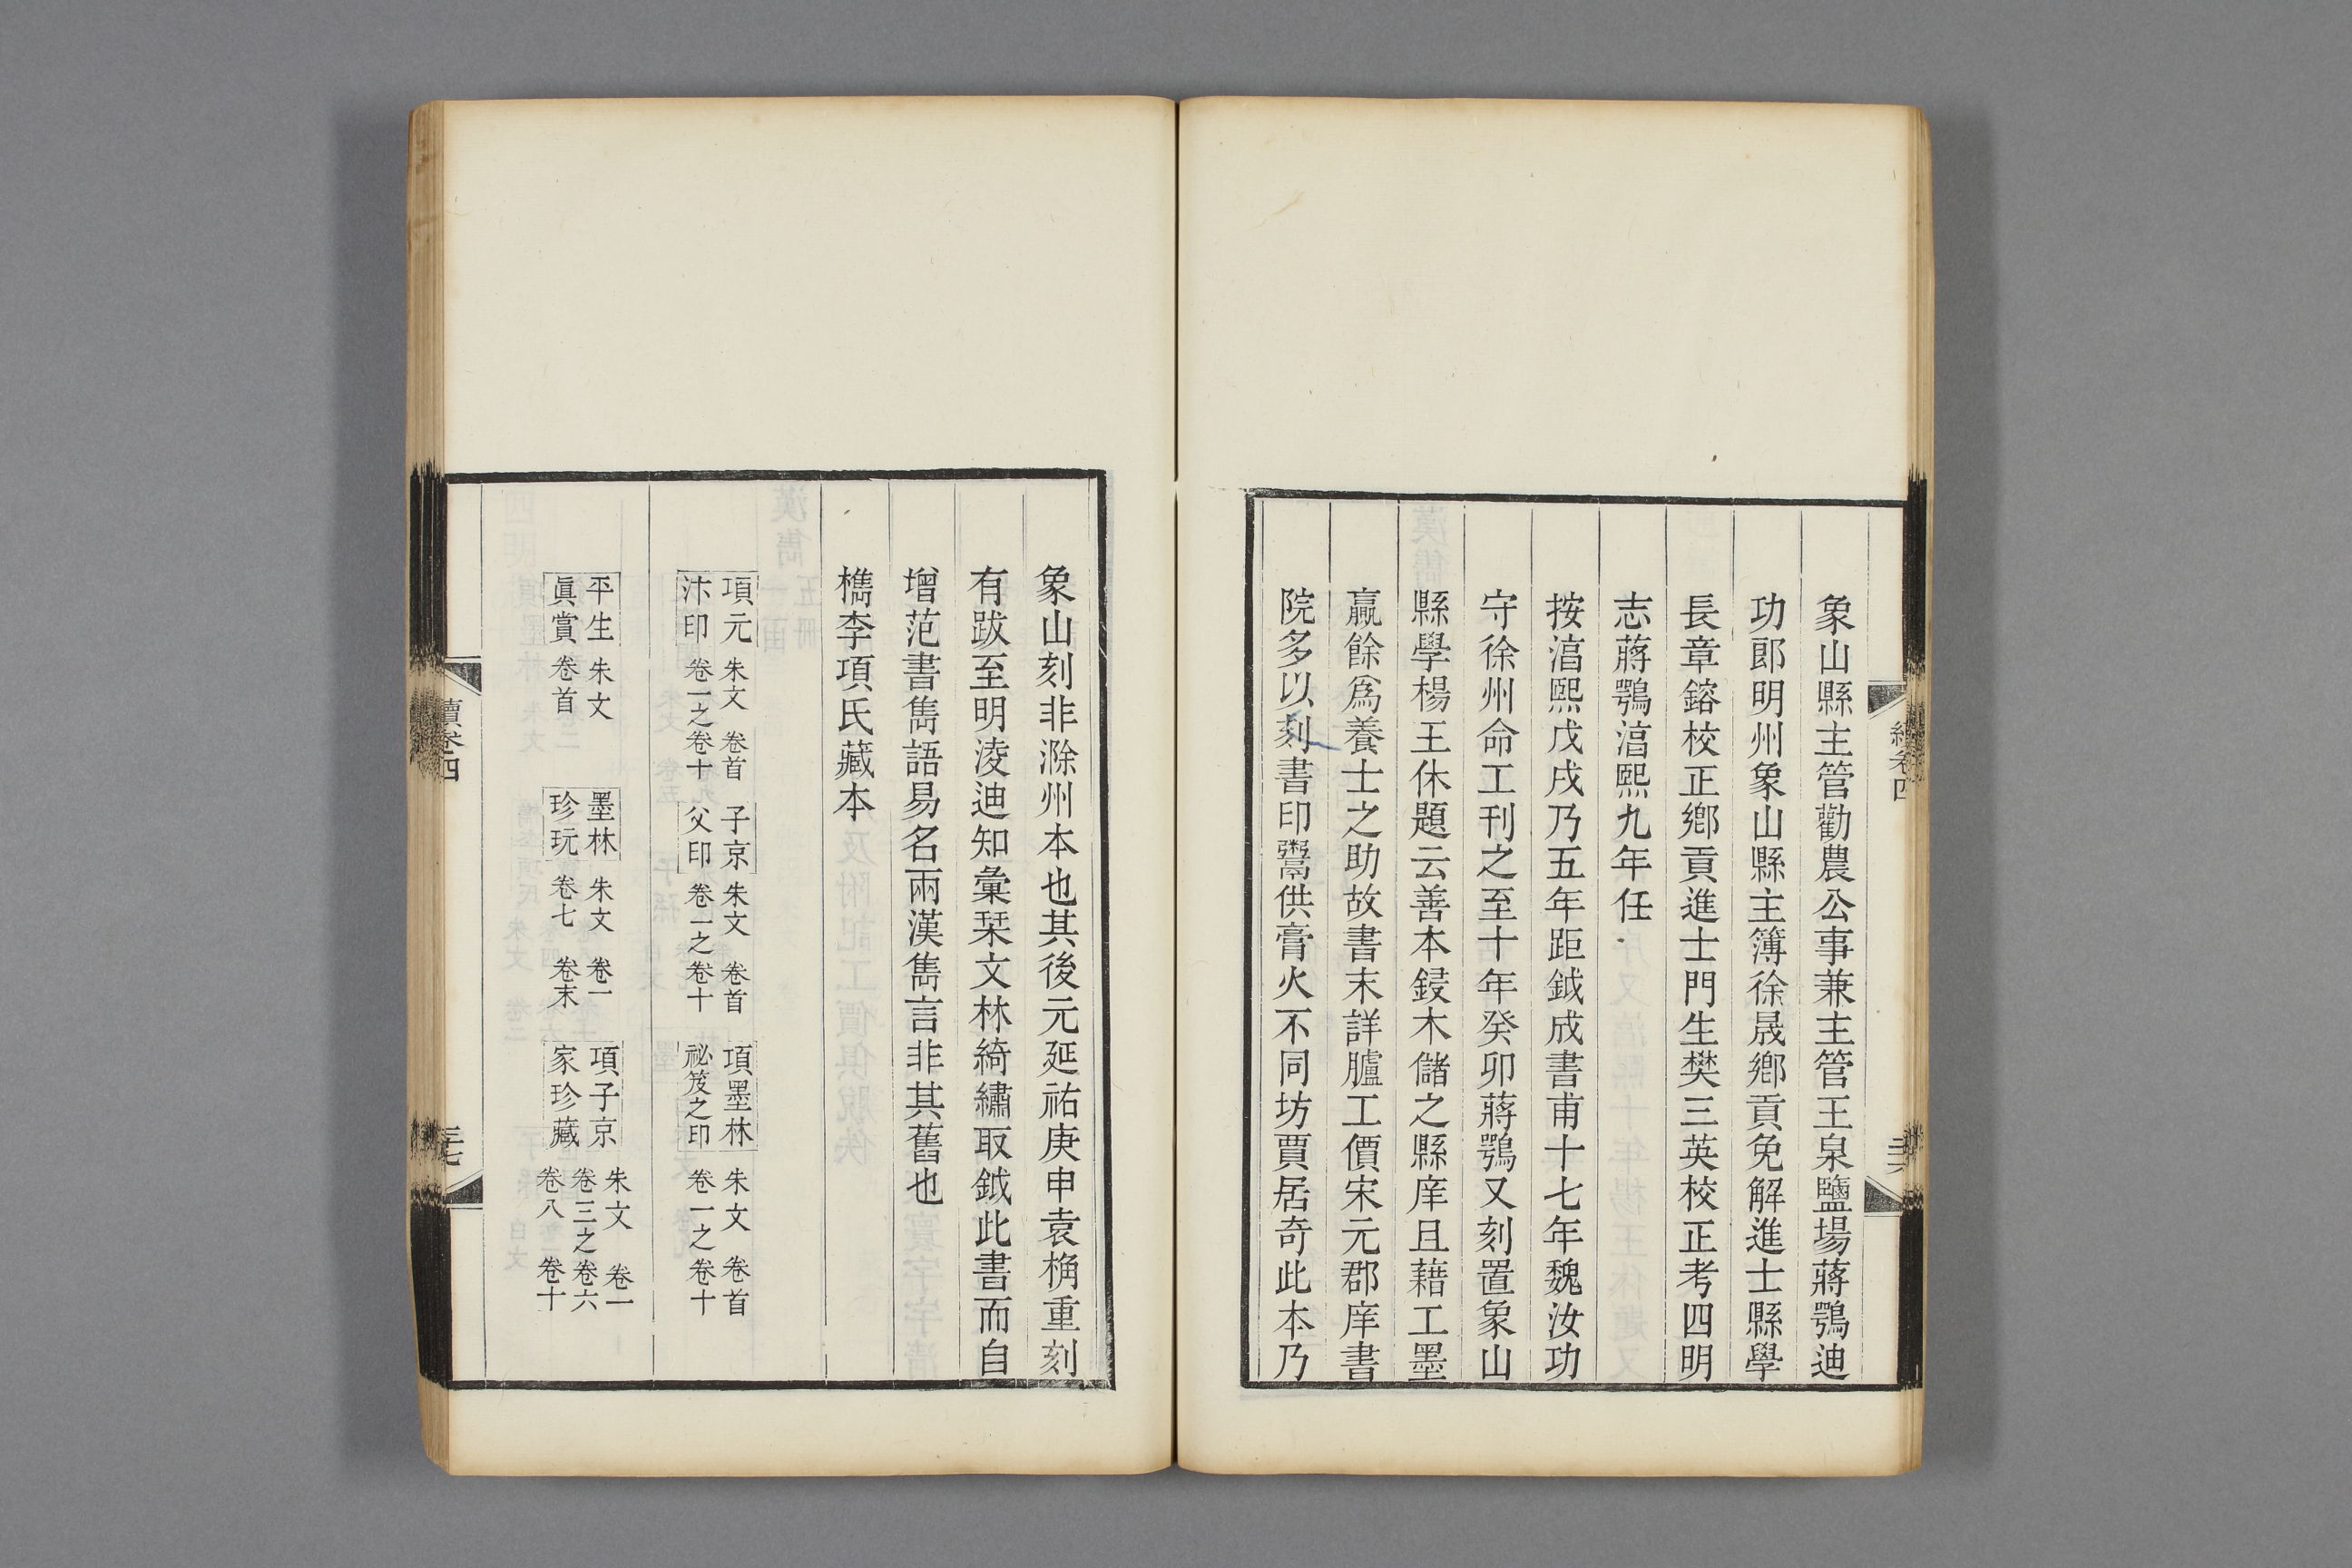 象山縣主管勸農公事兼主管王泉鹽場蔣鶚迪
功郎明州象山縣主簿徐晟鄉貢免解進士縣學
長章鎔校正鄉貢進士門生樊三英校正考四明
志蔣鶚淳熙九年任
按淳熙戊戌乃五年距鉞成書甫十七年魏汝功
守徐州命工刊之至十年癸卯蔣鶚又刻置象山
縣學楊王休題云善本鋟木儲之縣庠且藉工墨
贏餘爲養士之助故書末詳臚工價宋元郡庠書
院多以刻書印鬻供膏火不同坊賈居奇此本乃
續卷四
象山刻非滁州本也其後元延祐庚申袁桷重刻
有跋至明淩迪知彙栞文林綺繡取鉞此書而自
增范書雋語易名兩漢雋言非其舊也
檇李項氏藏本
項元汴印 朱文 卷首 卷一之卷十
子京父印 朱文 卷首 卷一之卷十
項墨林祕笈之印 朱文 卷首 卷一之卷十
平生眞賞 朱文 卷首
墨林珍玩 朱文 卷一 卷七 卷末
項子京家珍藏 朱文 卷一 卷三之卷六 卷八 卷十
續卷四